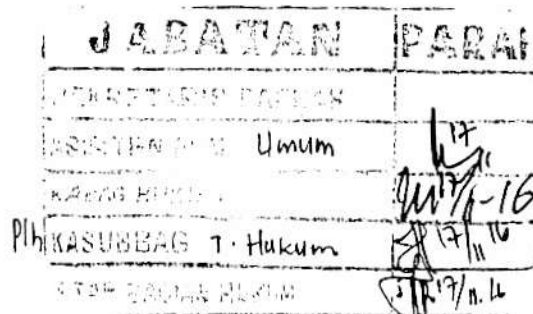 JABATAN PARAF
SEKRETARIS DAERAH
ASISTEN Umum 17
KABAG HUKUM 17/11-16
Plh KASUBBAG T. Hukum 17/11 16
STAF BAGIAN HUKUM 17/11.16